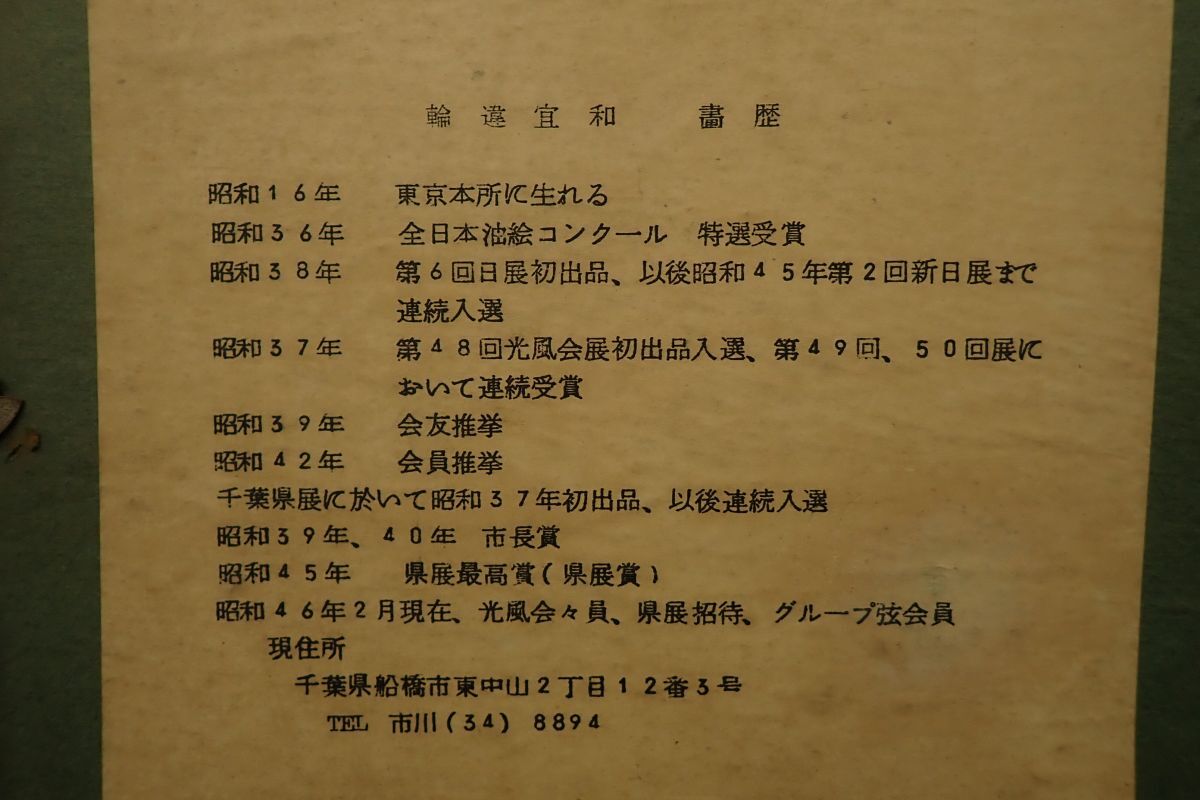 輪違宜和　畵歴
昭和１６年　東京本所に生れる
昭和３６年　全日本油絵コンクール　特選受賞
昭和３８年　第６回日展初出品、以後昭和４５年第２回新日展まで
連続入選
昭和３７年　第４８回光風会展初出品入選、第４９回、５０回展に
おいて連続受賞
昭和３９年　会友推挙
昭和４２年　会員推挙
千葉県展に於いて昭和３７年初出品、以後連続入選
昭和３９年、４０年　市長賞
昭和４５年　県展最高賞（県展賞）
昭和４６年２月現在、光風会々員、県展招待、グループ弦会員
現住所
千葉県船橋市東中山２丁目１２番３号
TEL　市川（３４）８８９４